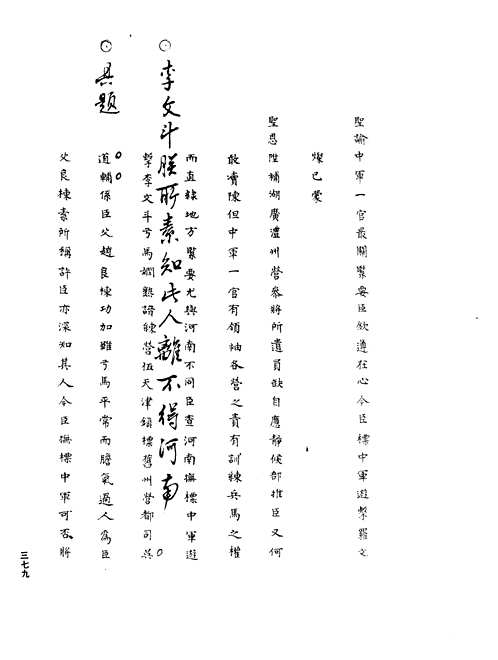 聖諭中軍一官最關緊要臣欽遵在心今臣標中軍遊擊羅文
燦已蒙
聖恩陞補湖廣澧州營參將所遺員缺自應靜候部推臣又何
敢瀆陳但中軍一官有領袖各營之責有訓練兵馬之權
而直隸地方緊要尤與河南不同臣查河南撫標中軍遊
李文斗朕所素知此人離不得河南
擊李文斗弓馬嫻熟諳練營伍天津鎮標舊州營都司吳
具題
道輔係臣父趙良棟功加雖弓馬平常而膽氣過人為臣
父良棟素所稱許臣亦深知其人今臣撫標中軍可否將
三七九